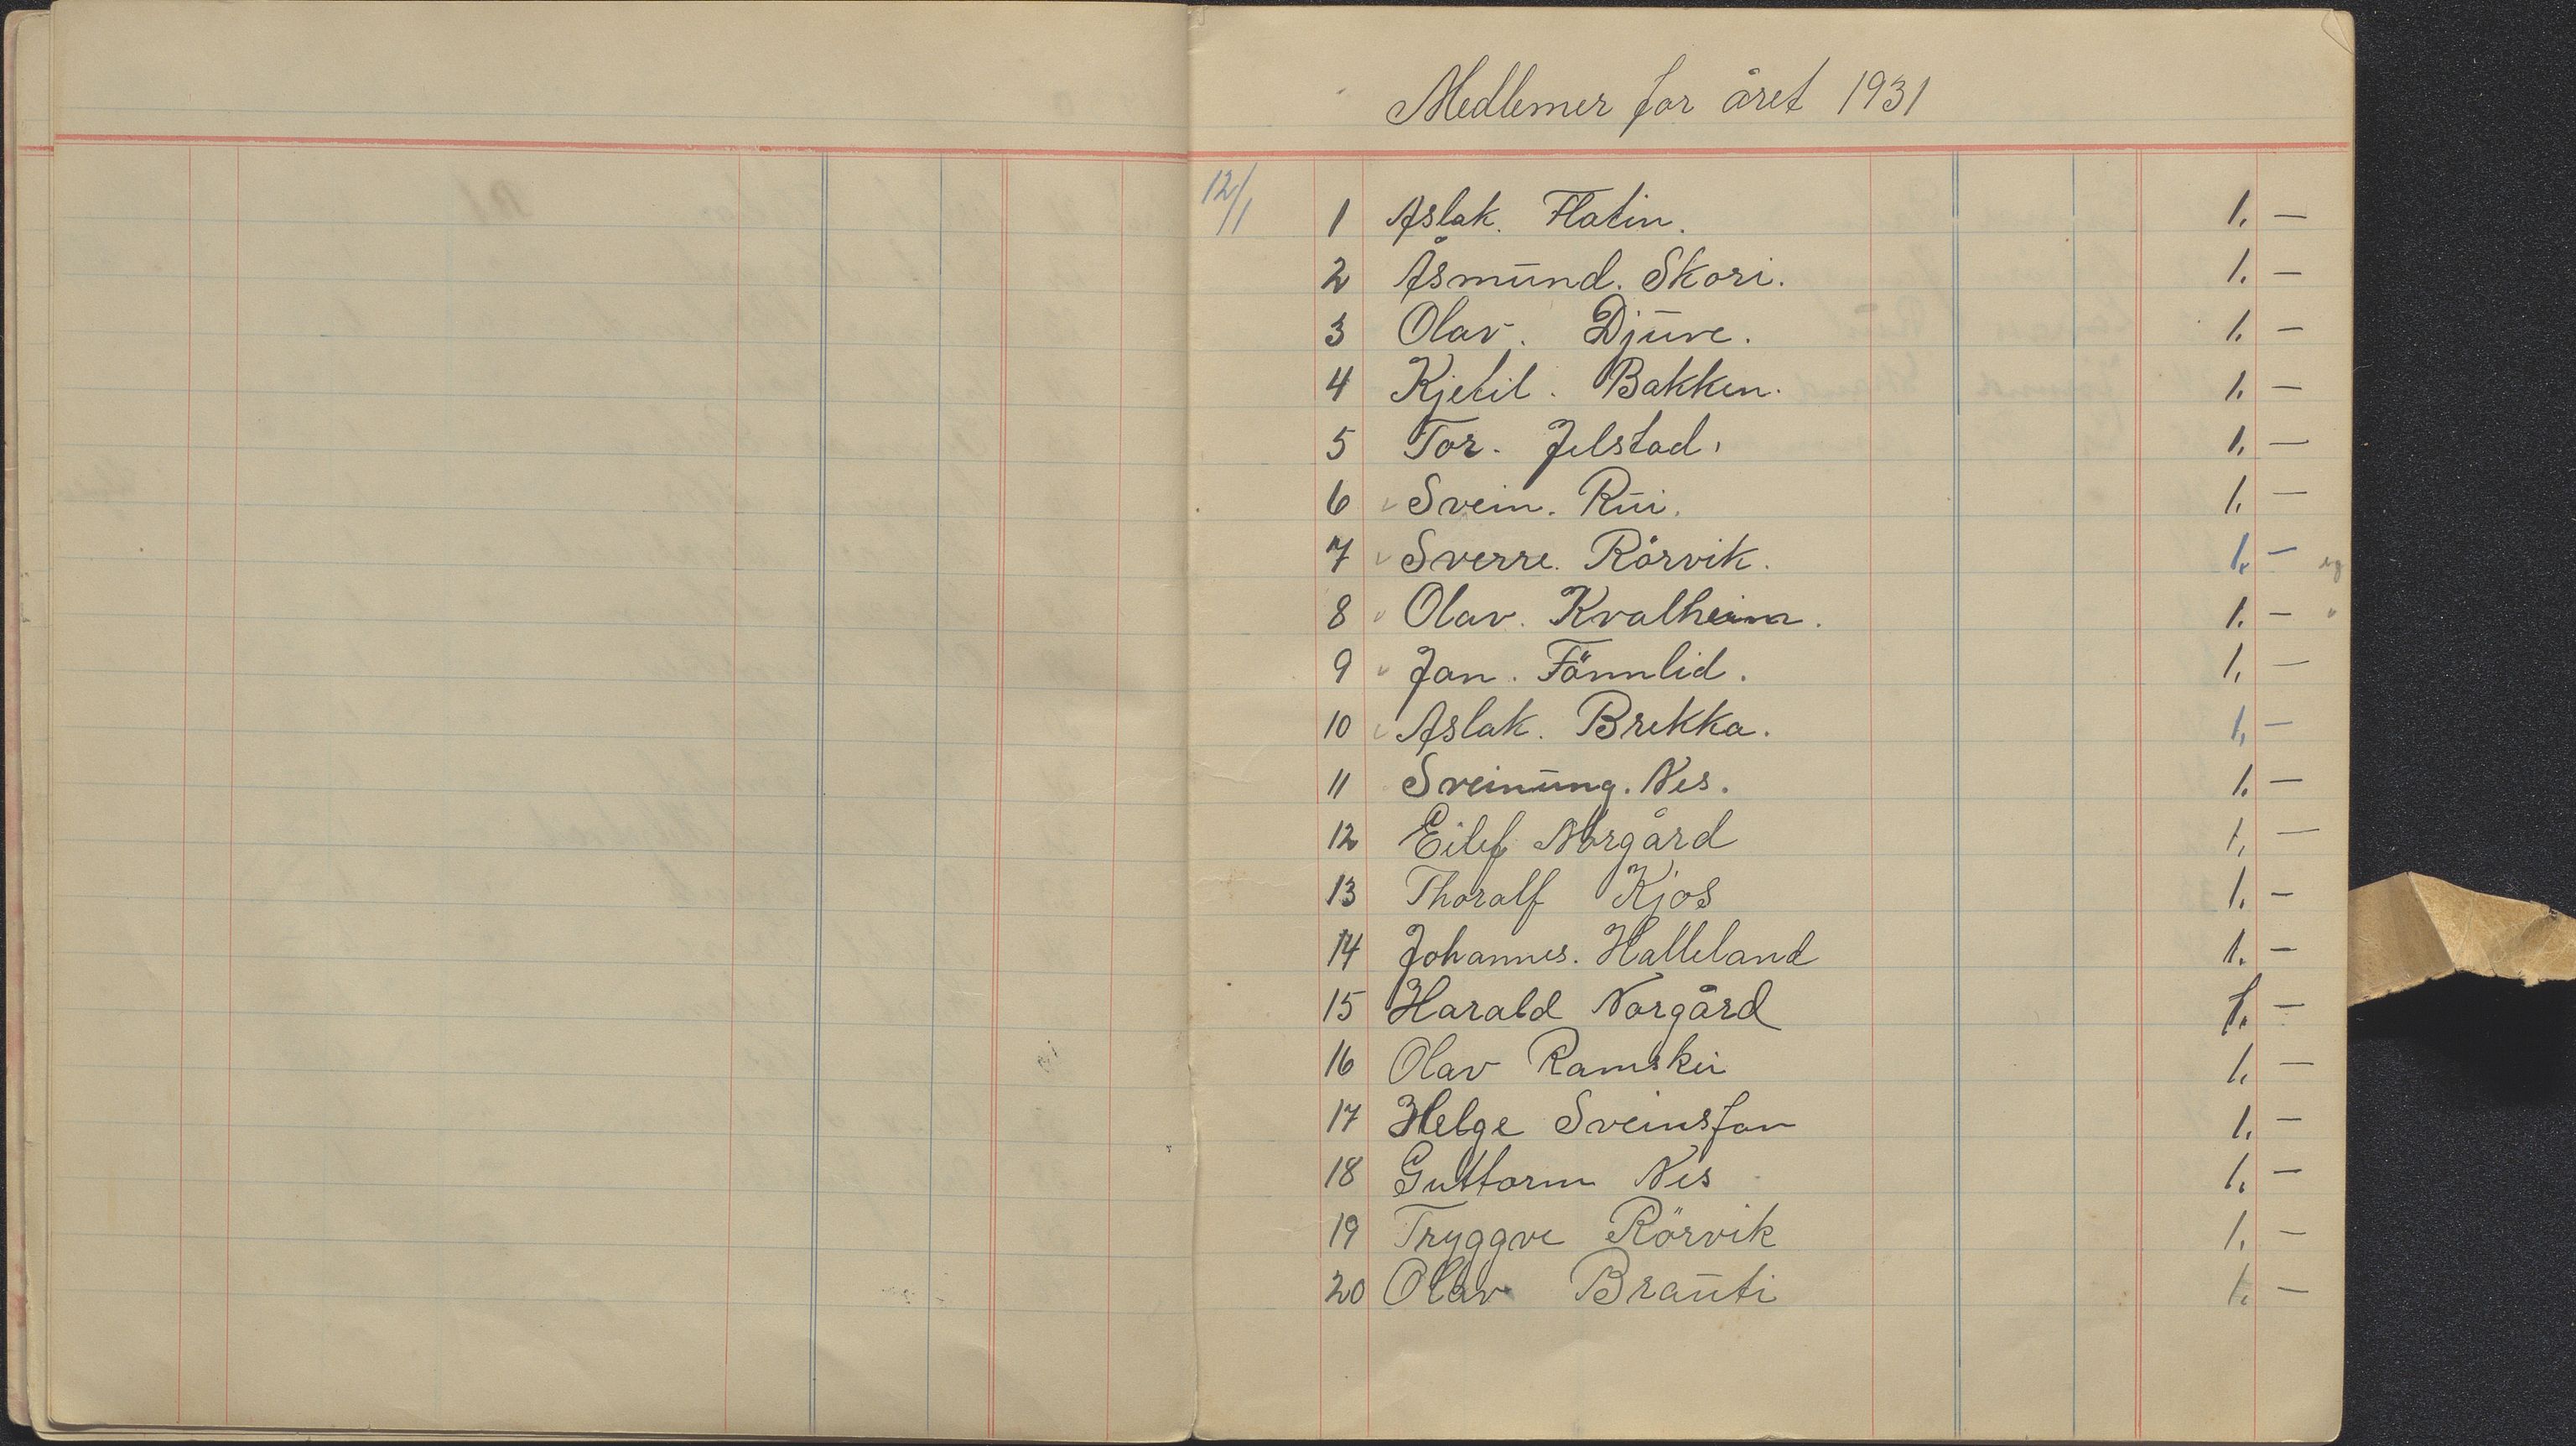 Medlemer for året 1931
12/1 1 Aslak. Flatin. 1. —
2 Åsmund. Skori. 1. —
3 Olav. Djuve. 1. —
4 Kjetil. Bakken. 1. —
5 Tor. Jelstad. 1. —
6 Svein. Rui. 1. —
7 Sverre. Rörvik. 1. —
8 Olav. Kvalheim. 1. —
9 Jan. Fönnlid. 1. —
10 Aslak. Brekka. 1. —
11 Sveinung. Nes. 1. —
12 Eilef Norgård 1. —
13 Thoralf Kjos 1. —
14 Johannes. Halleland 1. —
15 Harald Norgård 1. —
16 Olav 1. —
17 Helge 1. —
18 Guttorm Nes 1. —
19 Tryggve Rörvik 1. —
20 Olav Brauti 1. —